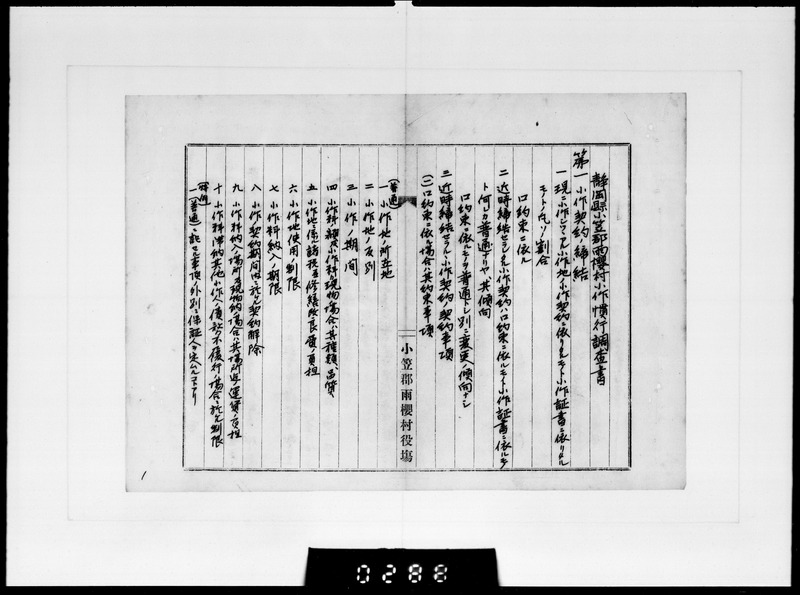 静岡縣小笠郡雨櫻村小作慣行調査書
第一 小作契約ノ締結
一 現ニ小作シツヽアル小作地ノ小作契約ニ依リタルモノト小作証書ニ依リタル
モノト凡ソノ割合
口約束ニ依ル
二 近時締結セラルヽ小作契約ハ口約束ニ依ルモノト小作証書ニ依ルモノ
ト何レカ普通ナリヤ其傾向
口約束ニ依ルモノヲ普通トシ別ニ変更ノ傾向ナシ
三 近時締結セラルヽ小作契約ノ契約事項
(一)口約束ニ依ル場合ハ其約束事項
(普通)
一 小作地ノ所在地
二 小作地ノ反別
三 小作ノ期間
四 小作料額及小作料現物ノ場合ハ其種類、品質
五 小作地ニ係ル諸税及修繕改良費ノ負担
六 小作地使用ノ制限
七 小作料納入ノ期限
八 小作契約期間内ニ於ケル契約解除
九 小作料納入場所及現物納ノ場合ハ其場所迄ノ運賃ノ負担
十 小作料滞納其他小作人ノ債務不履行ノ場合ニ於ケル制限
(特例)
一(普通)ニ記セル事項ノ外別ニ保証人ヲ定ムルコトアリ
小笠郡雨櫻村役場
1
0288